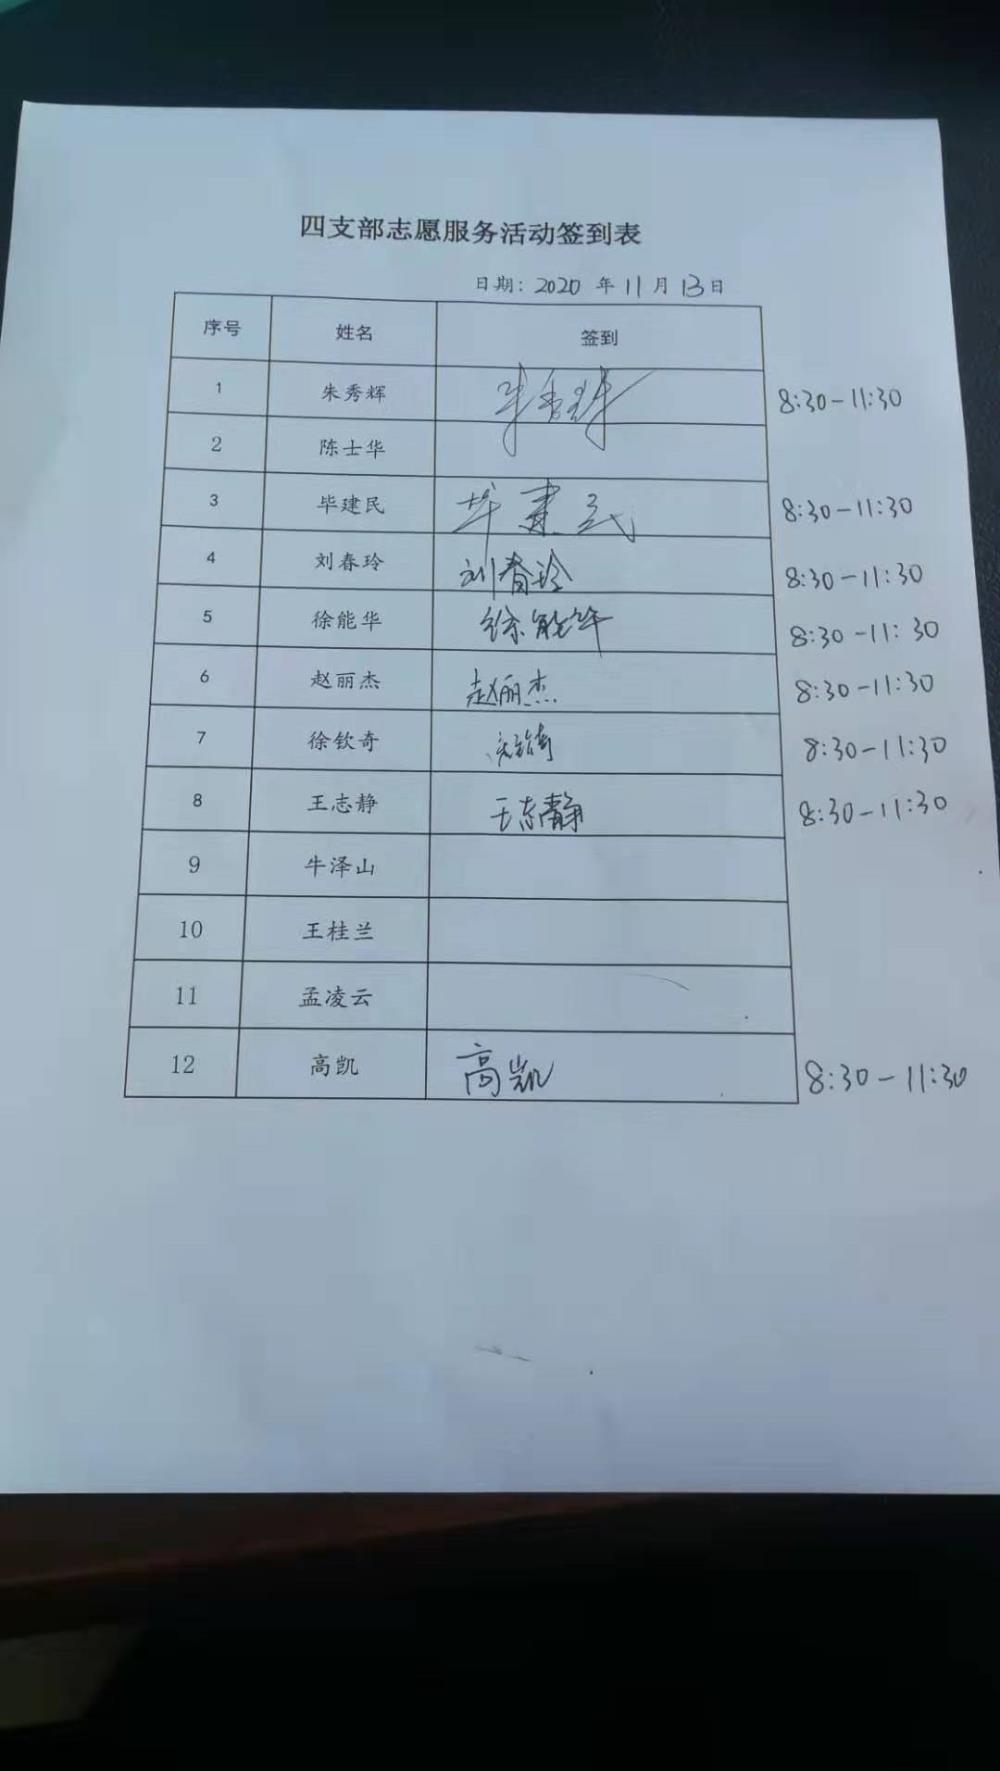 四支部志愿服务活动签到表
日期：2020 年 11 月 13日
序号 姓名 签到
1 朱秀辉 朱秀辉 8:30-11:30
2 陈士华
3 毕建民 毕建民 8:30-11:30
4 刘春玲 刘春玲 8:30-11:30
5 徐能华 徐能华 8:30-11:30
6 赵丽杰 赵丽杰 8:30-11:30
7 徐钦奇 徐钦奇 8:30-11:30
8 王志静 王志静 8:30-11:30
9 牛泽山
10 王桂兰
11 孟凌云
12 高凯 高凯 8:30-11:30